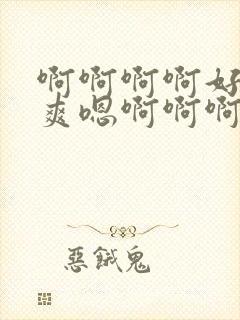 啊啊啊啊好
爽嗯啊啊啊
惡餓鬼